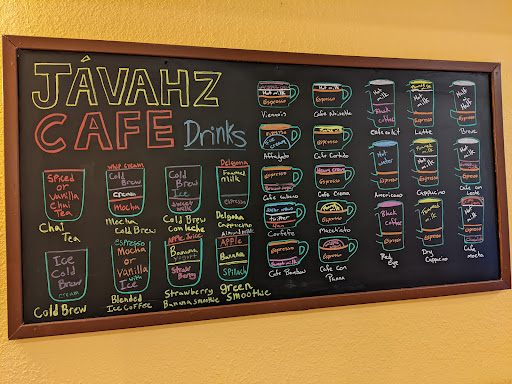 JÁVAHZ
CAFE Drinks
Spiced
or
Vanilla
Chai
Tea
Chai
Tea
Whip cream
Cold
Brew
cream
Mocha
Mocha
Cold Brew
Cold
Brew
Ice
sweet
milk
Cold Brew
Con leche
Delgona
Foamed
milk
espresso
Delgona
Cappuccino
Ice
Cold
Brew
cream
Cold Brew
espresso
Mocha
or
Vanilla
with
Ice
Blended
Ice Coffee
Apple Juice
Banana
yogurt
Straw
Berry
Strawberry
Banana smoothie
Almond milk
Apple
Banana
Spinach
green
Smoothie
Hot milk
espresso
Viennois
Hot milk
espresso
Cafe Noisette
espresso
ice cream
Affogato
espresso
Cafe Cortado
espresso
Cafe Cubano
espresso
Cafe Crema
Confeto
espresso
Macchiato
espresso
Sweet milk
Cafe Bombon
espresso
Cafe Con
Panna
Hot
milk
Black
coffee
Cafe au lait
Hot
milk
espresso
Latte
Hot
Half
espresso
Breve
Hot
water
espresso
Americano
Hot
milk
espresso
Cappucino
Hot
milk
espresso
Cafe con
Leche
Black
coffee
espresso
Red
Eye
Foamed
milk
espresso
Dry
Cappucino
Hot
milk
espresso
Cafe
Mocha